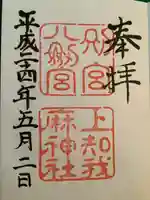 奉拝
別宮
八劔宮
上知我
麻神社
平成二四年五月二日